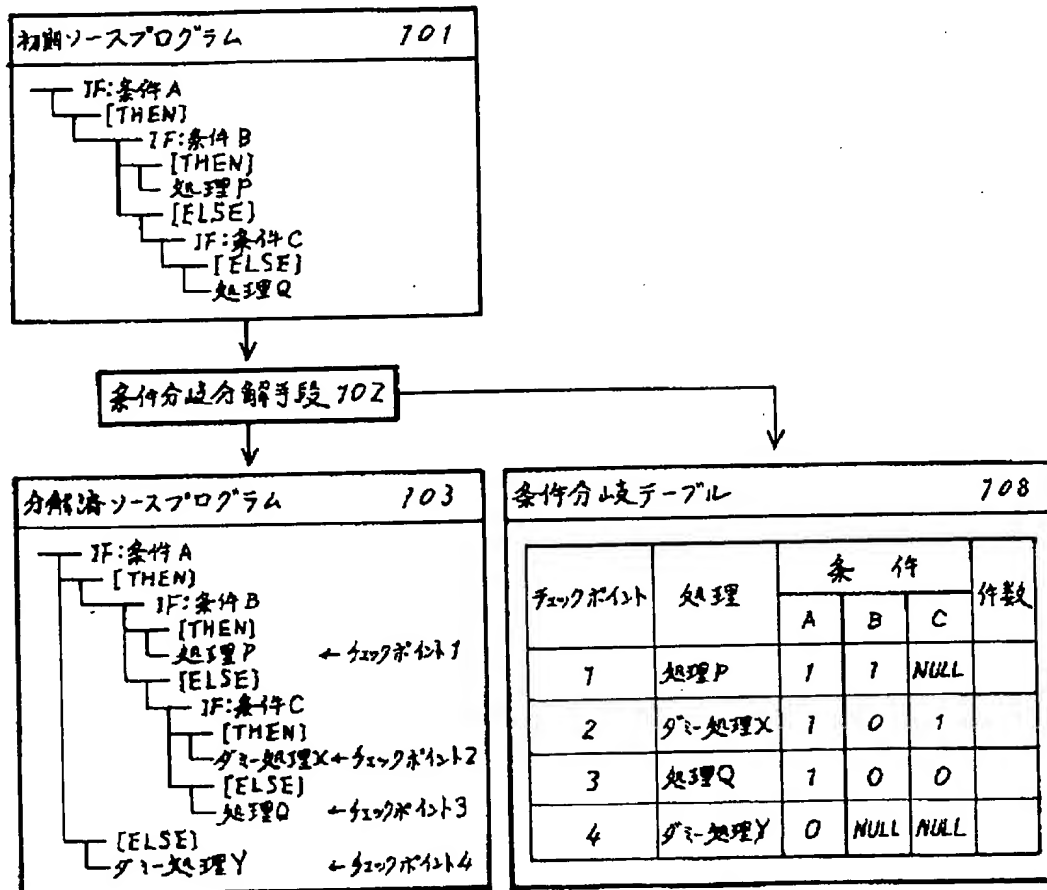 初期ソースプログラム 101
IF:条件A
[THEN]
IF:条件B
[THEN]
処理P
[ELSE]
IF:条件C
[ELSE]
処理Q
条件分岐分解手段 102
分解済ソースプログラム 103
IF:条件A
[THEN]
IF:条件B
[THEN]
処理P ←チェックポイント1
[ELSE]
IF:条件C
[THEN]
ダミー処理X←チェックポイント2
[ELSE]
処理Q ←チェックポイント3
[ELSE]
ダミー処理Y ←チェックポイント4
条件分岐テーブル 108
チェックポイント 処理 条件 件数
A B C
1 処理P 1 1 NULL
2 ダミー処理X 1 0 1
3 処理Q 1 0 0
4 ダミー処理Y 0 NULL NULL